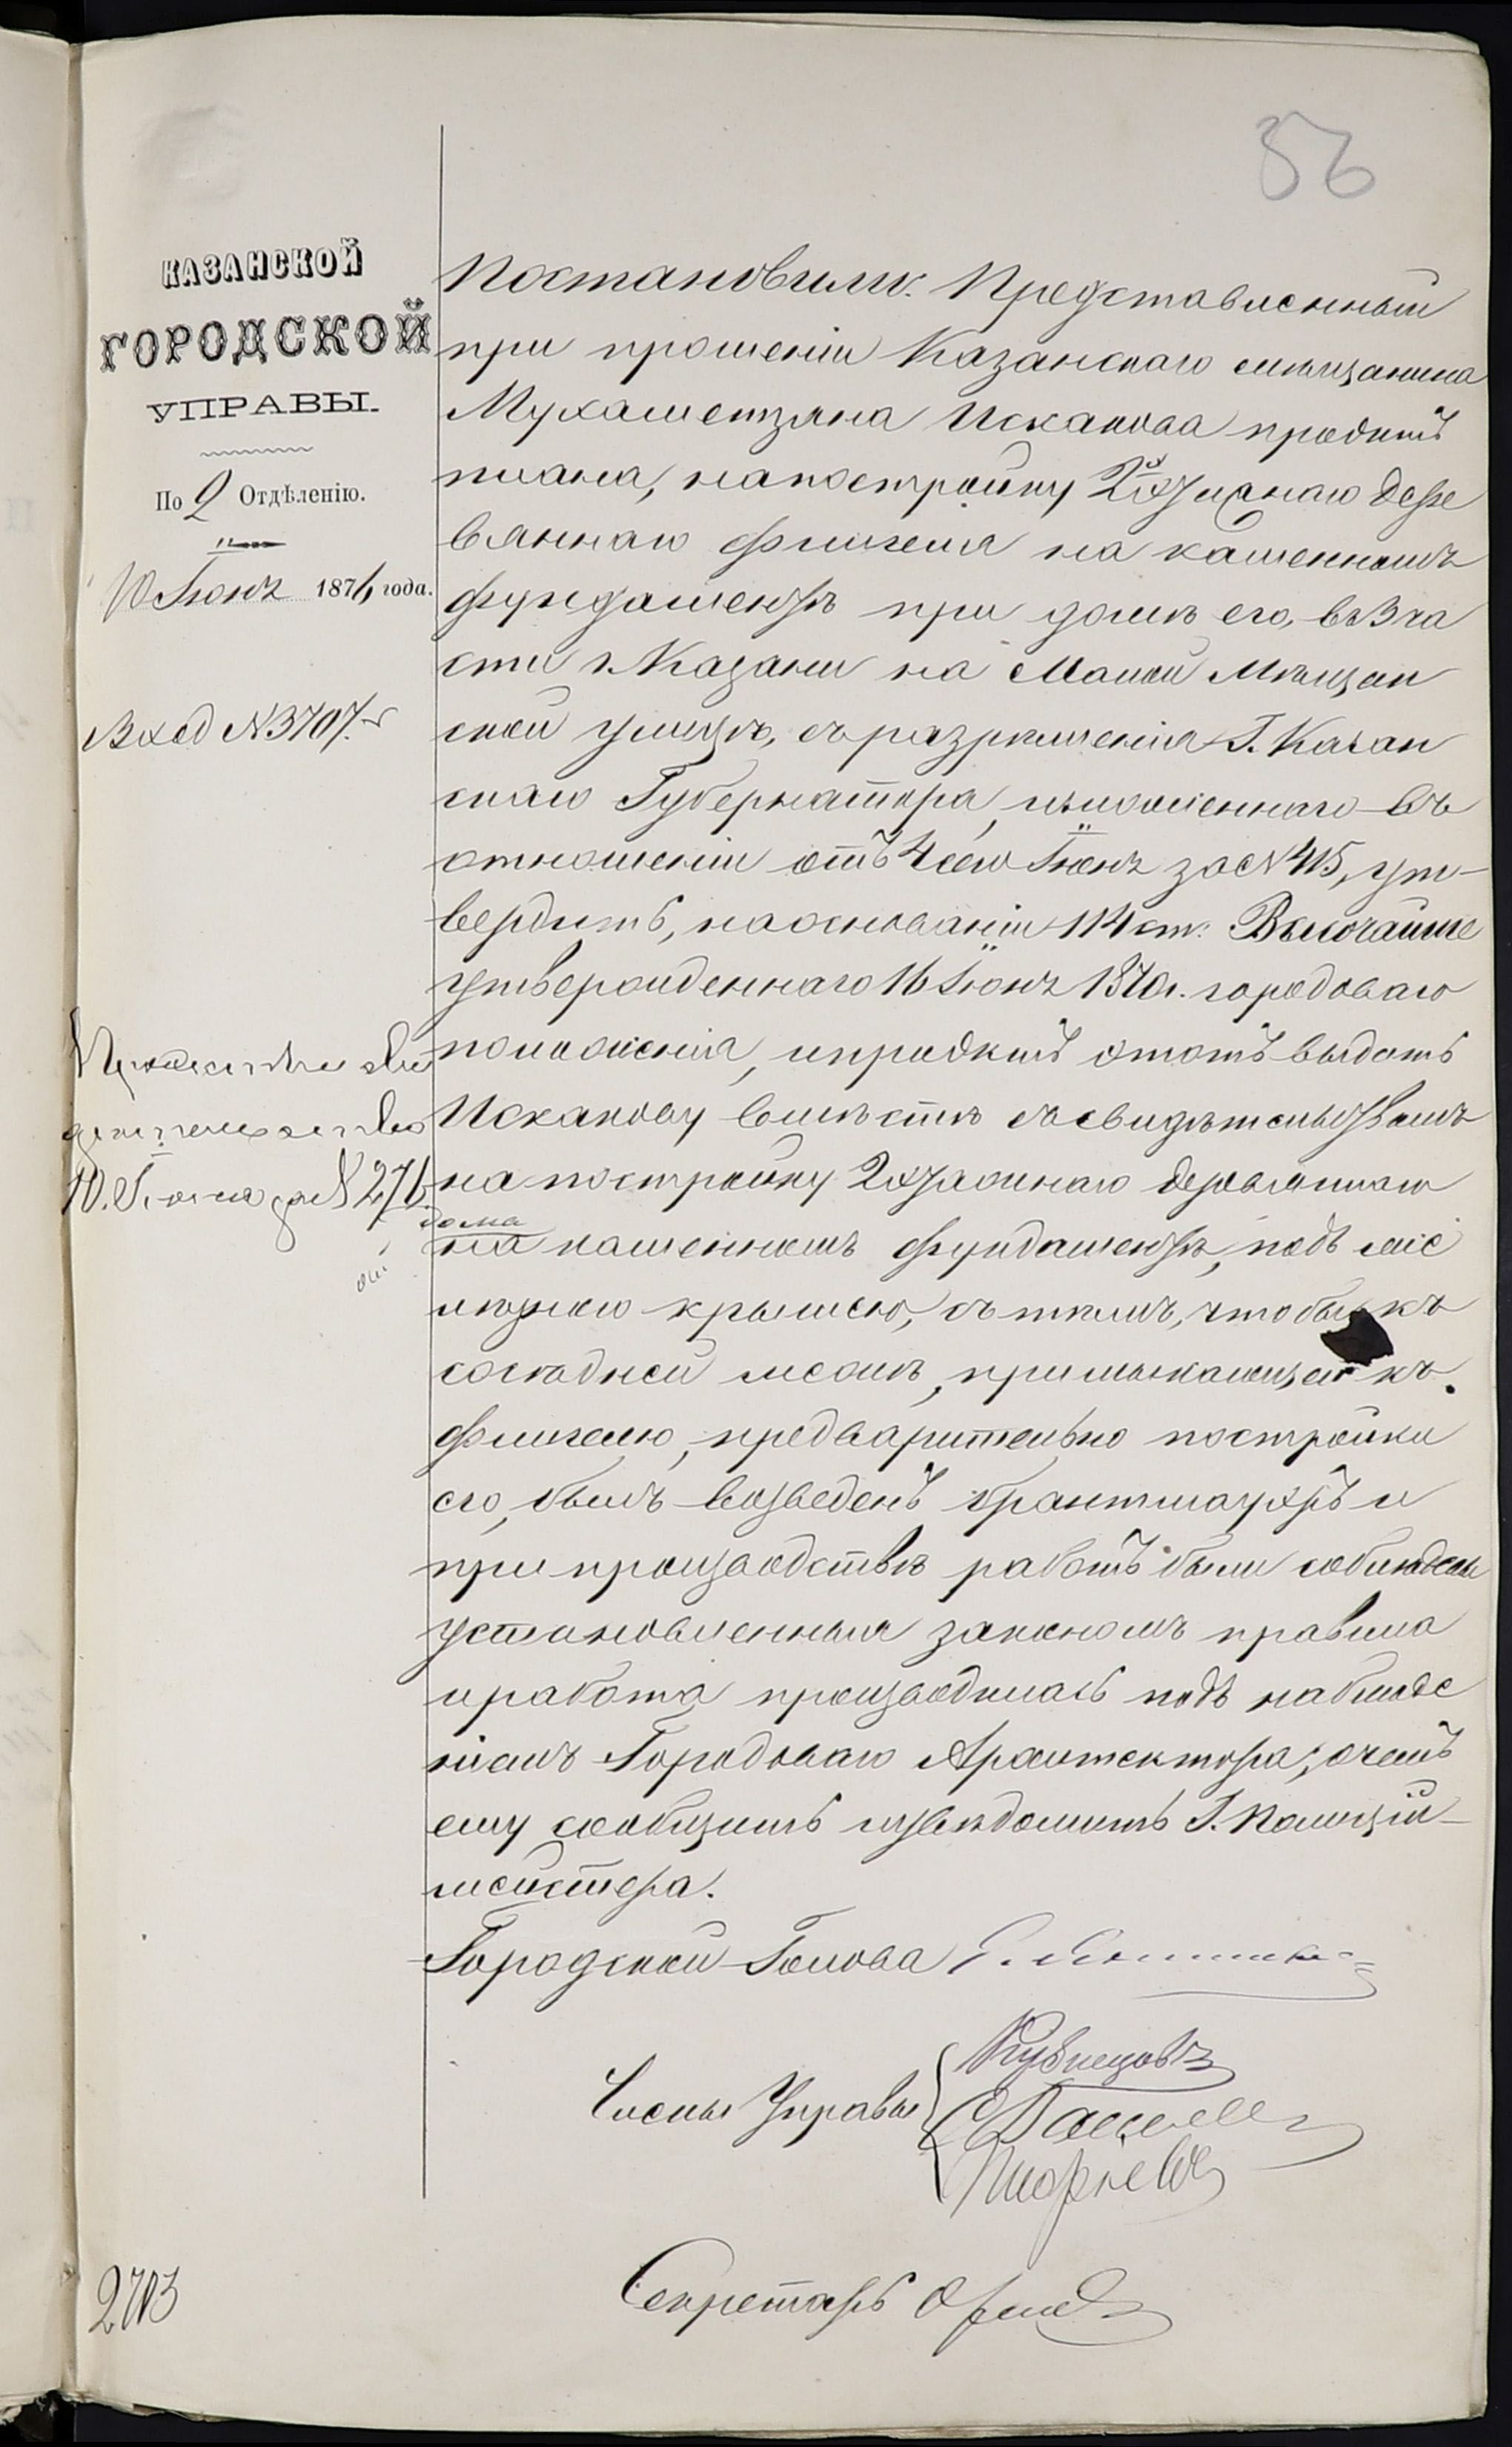 56
КАЗАНСКОЙ
ГОРОДСКОЙ
УПРАВЫ.
По 2 Отдѣленію.
10 Іюня 1876 года.
Вход N 3707.
10. Іюня за N 276
Постановили: Представленный
при прошеніи Казанскаго мѣщанина
Мухаметзяна Искакова проэктъ
плана, на постройку 2х этажнаго дере
вяннаго флигеля на каменномъ
фундаментѣ при домѣ его, въ 3 ча
сти г. Казани на Малой Мѣщан
ской улицѣ, съ разрѣшенія Г. Казан
скаго Губернатора, изложеннаго въ
отношеніи отъ 4 сего Іюня за N 415, ут-
вердить, на основаніи 114 ст. Высочайше
утвержденнаго 16 Іюня 1870 г. городоваго
положенія, и проэктъ этотъ выдать
Искакову вмѣстѣ съ свидѣтельствомъ
на постройку 2х этажнаго деревяннаго
дома
на каменномъ фундаментѣ, подъ же
лѣзною крышею, съ тѣмъ, чтобы къ
сосѣдней межѣ, примыкающей къ
флигелю, предварительно постройки
его, былъ возведенъ брантмауэръ и
при производствѣ работъ были соблюдены
установленныя закономъ правила
и работа производилась подъ наблюде
ніемъ Городоваго Архитектора; о чемъ
ему сообщить и увѣдомить Г. Полиціи-
мейстера.
Городской Голова
Члены Управы
Кузнецовъ
Секретарь
2703